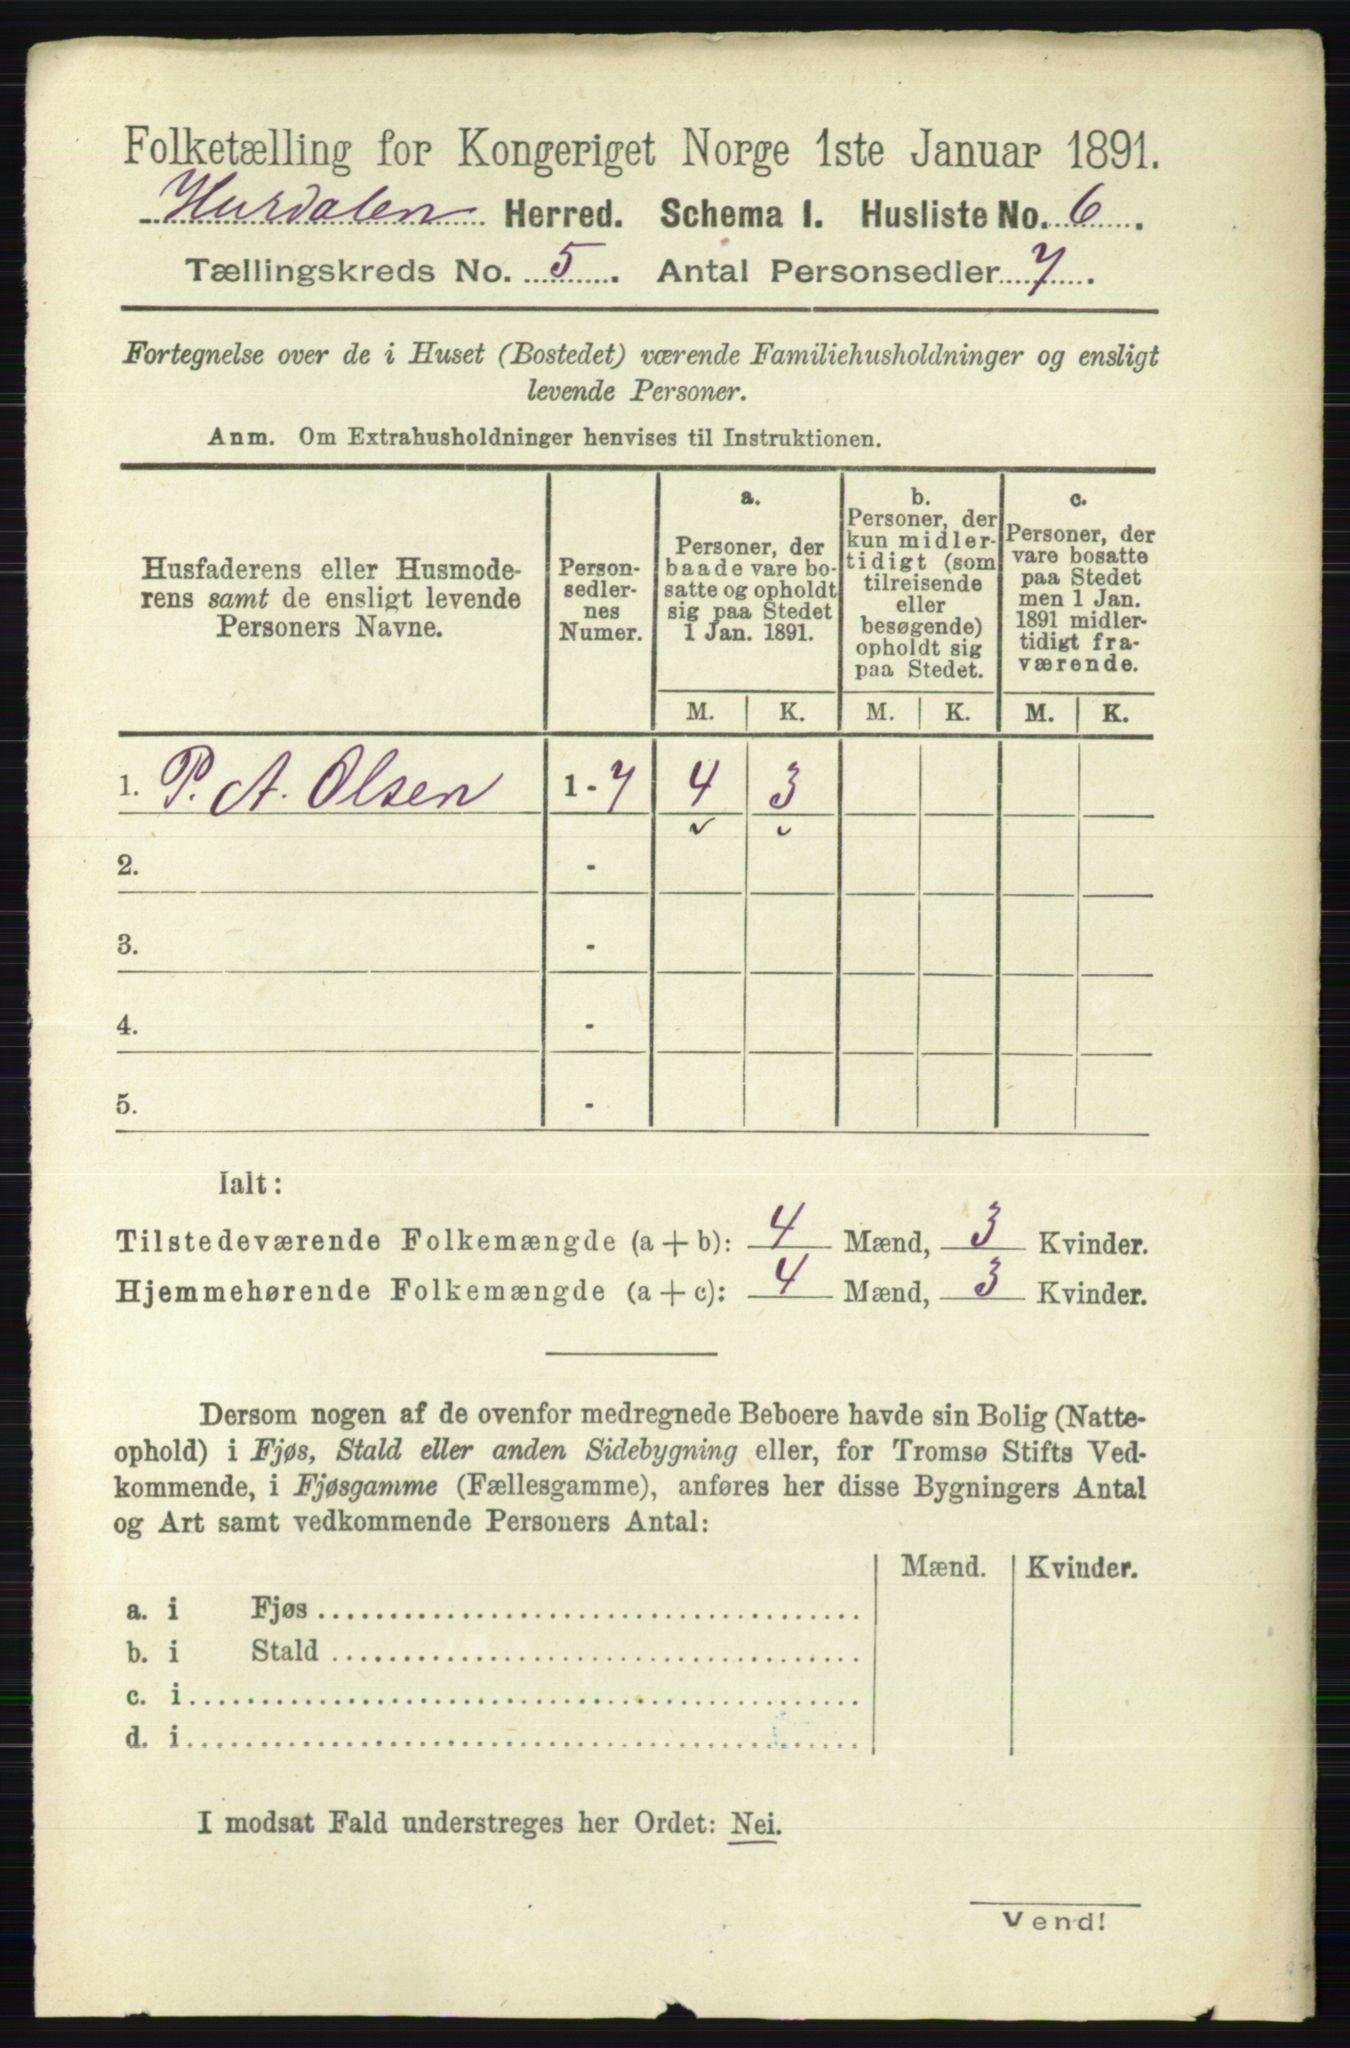 Folketælling for Kongeriget Norge 1ste Januar 1891.
Hurdalen Herred. Schema 1. Husliste No. 6.
Tællingskreds No. 5. Antal Personsedler 7.
Fortegnelse over de i Huset (Bostedet) værende Familiehusholdninger og ensligt
levende Personer.
Anm. Om Extrahusholdninger henvises til Instruktionen.
Husfaderens eller Husmode-
rens samt de ensligt levende
Personers Navne.
Person-
sedler-
nes
Numer.
a.
Personer, der
baade vare bo-
satte og opholdt
sig paa Stedet
1 Jan. 1891.
b.
Personer, der
kun midler-
tidigt (som
tilreisende
eller
besøgende)
opholdt sig
paa Stedet.
c.
Personer, der
vare bosatte
paa Stedet
men 1 Jan.
1891 midler-
tidigt fra-
værende.
M. K. M. K. M. K.
1. P. A. Olsen 1 - 7 4 3
2. -
3. -
4. -
5. -
Ialt:
Tilstedeværende Folkemængde (a + b): 4 Mænd, 3 Kvinder.
Hjemmehørende Folkemængde (a + c): 4 Mænd, 3 Kvinder.
Dersom nogen af de ovenfor medregnede Beboere havde sin Bolig (Natte-
ophold) i Fjøs, Stald eller anden Sidebygning eller, for Tromsø Stifts Ved-
kommende, i Fjøsgamme (Fællesgamme), anføres her disse Bygningers Antal
og Art samt vedkommende Personers Antal:
Mænd. Kvinder.
a. i Fjøs
b. i Stald
c. i
d. i
I modsat Fald understreges her Ordet: Nei.
Vend!